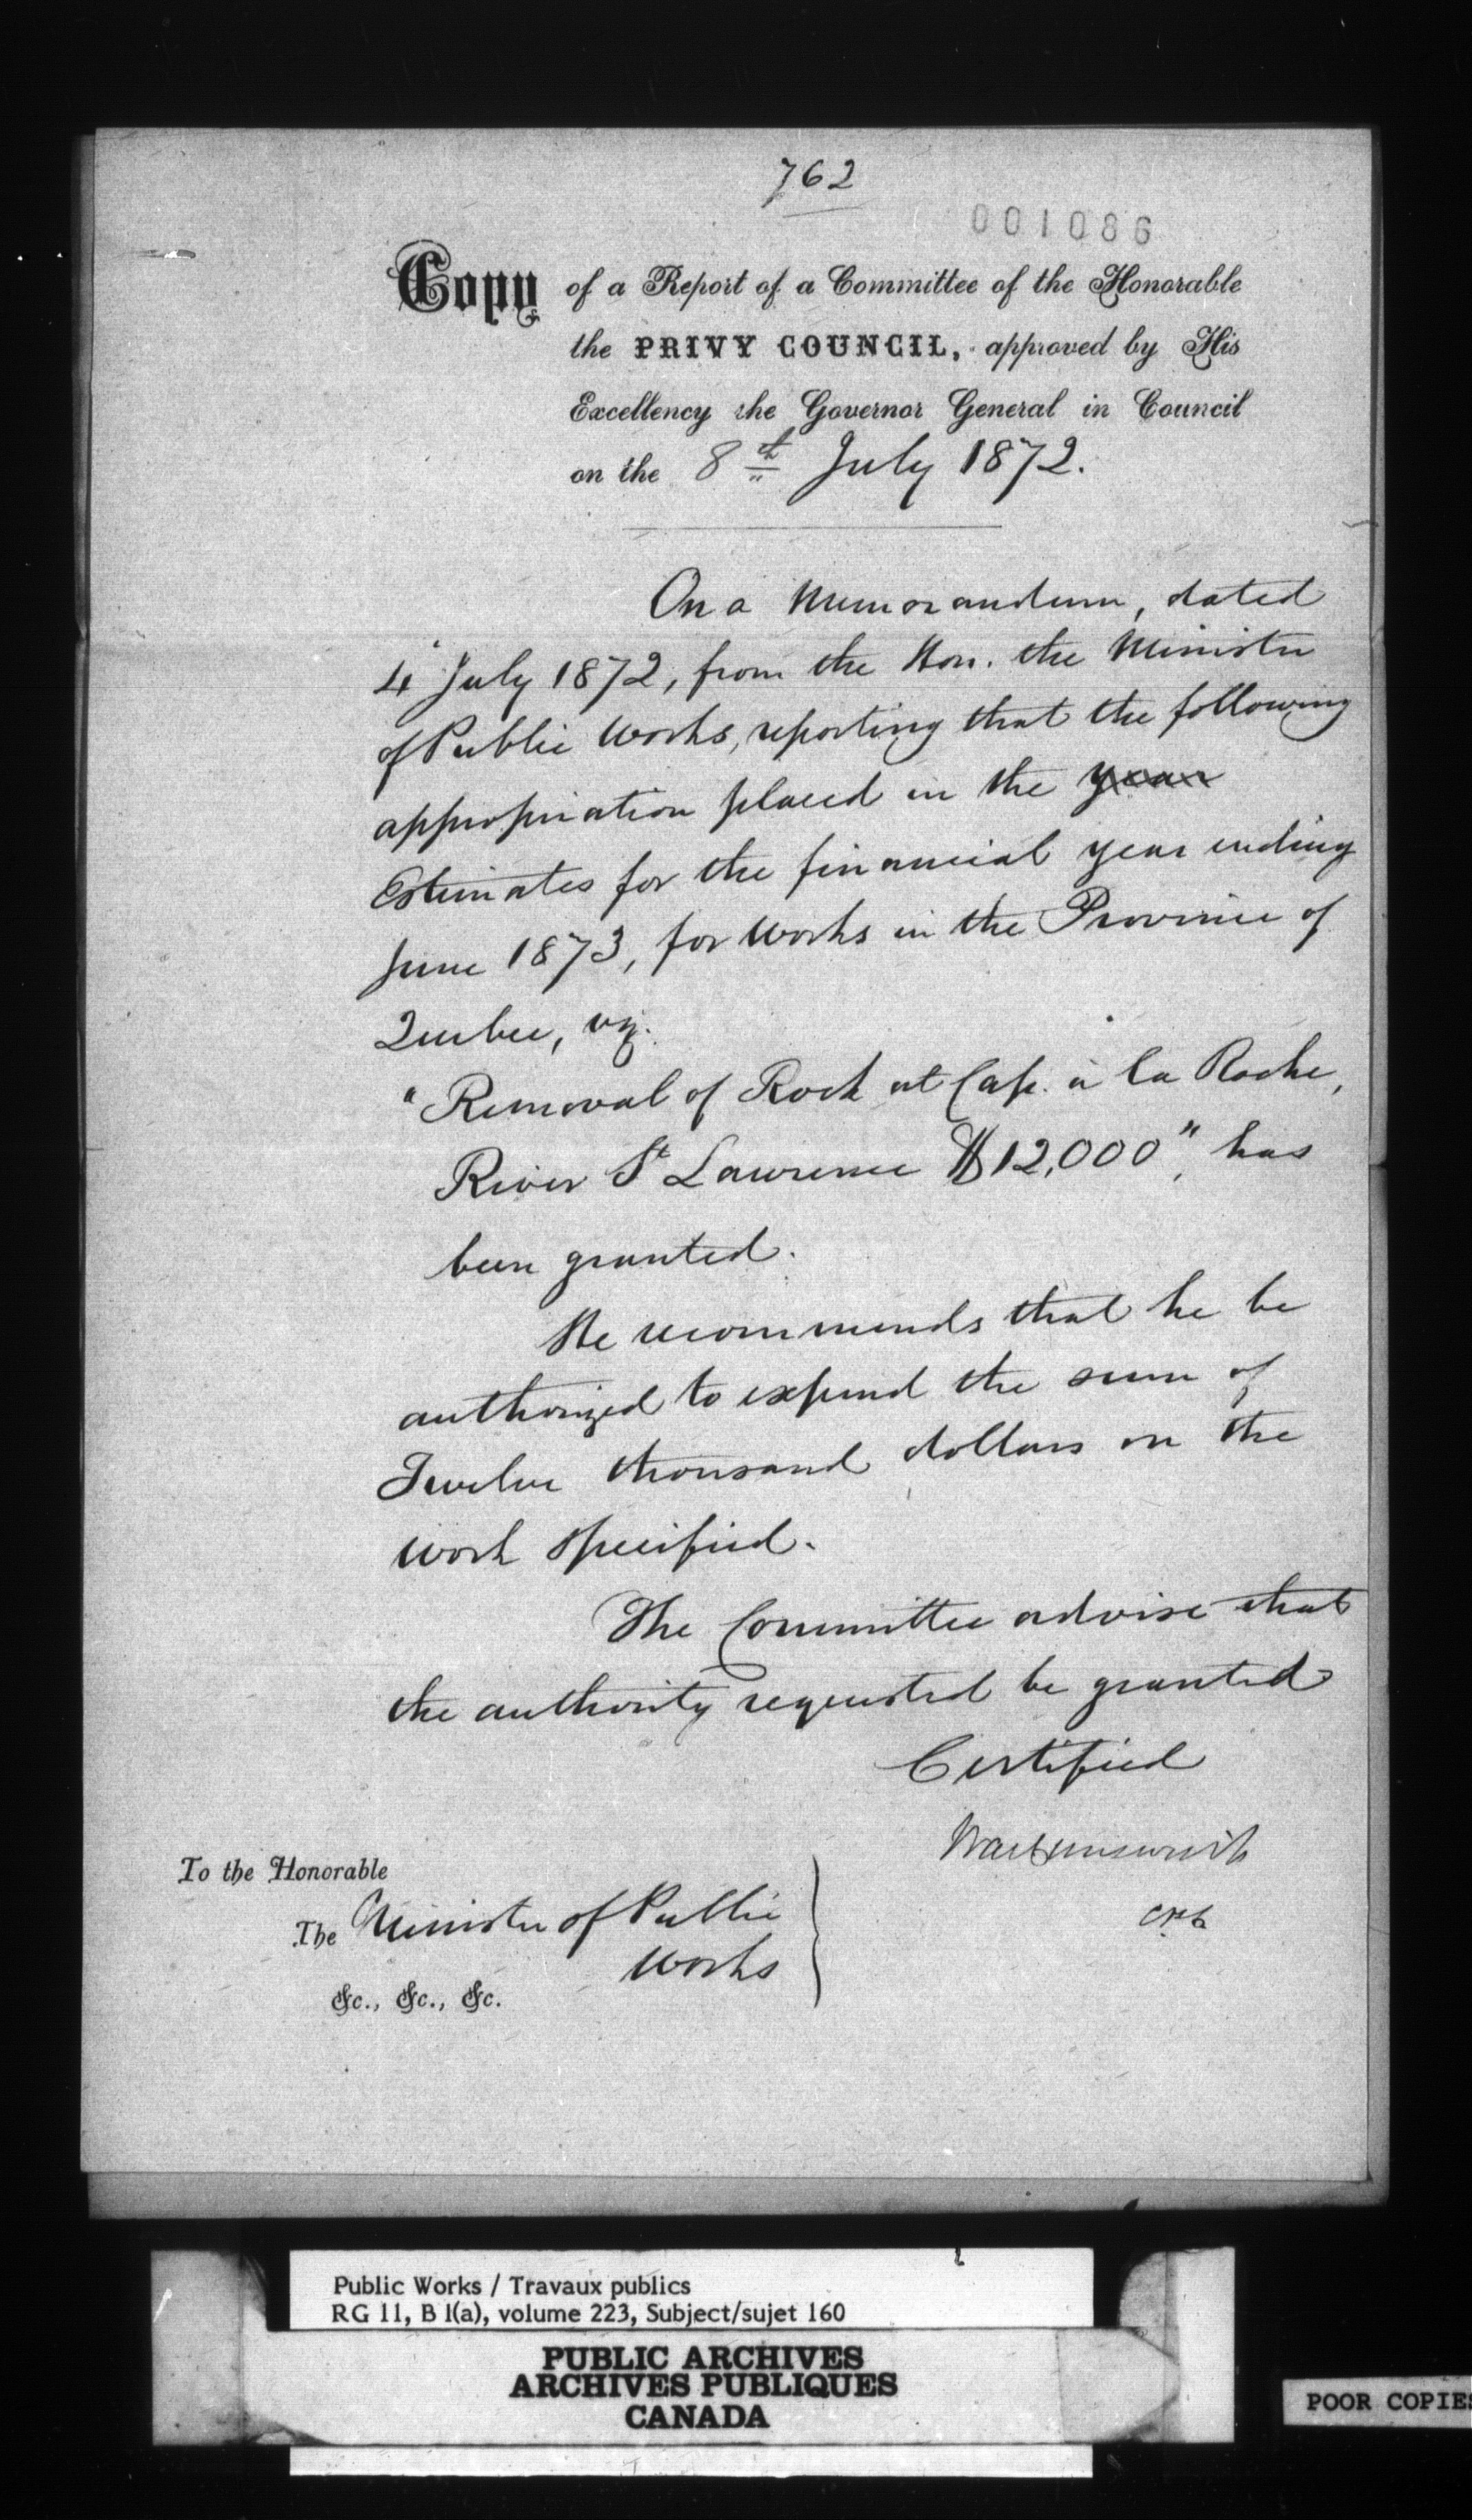 762
001086
Copy of a Report of a Committee of the Honorable
the PRIVY COUNCIL, approved by His
Excellency the Governor General in Council
on the 8th July 1872.
On a Memorandum, dated
4" July 1872, from the Hon. the Minister
of Public Works, reporting that the following
appropriation placed in the year
Estimates for the financial year ending
June 1873, for works in the Province of
Quebec, viz:
"Removal of Rock at Cap. à la Roche,
River St Lawrence $12,000", has
been granted.
He recommends that he be
authorized to expend the sum of
Twelve thousand dollars on the
work specified.
The Committee advise that
the authority requested be granted
Certified
To the Honorable
The Minister of Public
Works
&c., &c., &c.
Public Works / Travaux publics
RG 11, B 1(a), volume 223, Subject/sujet 160
PUBLIC ARCHIVES
ARCHIVES PUBLIQUES
CANADA
POOR COPIES